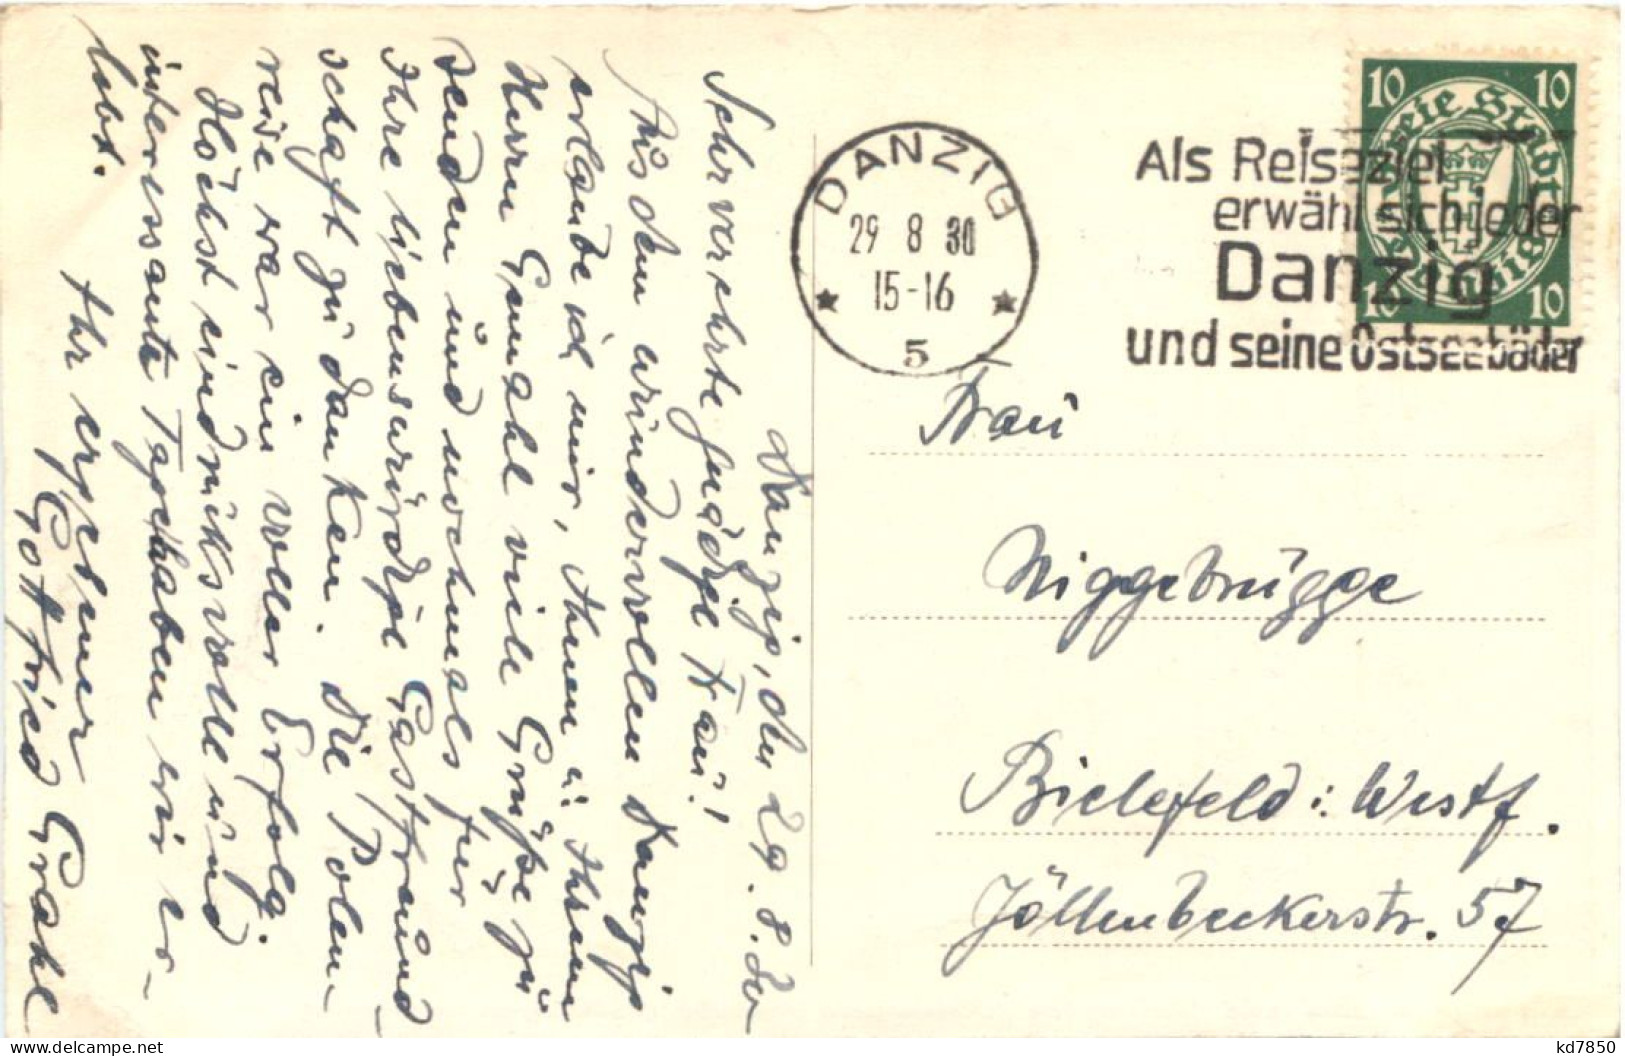 Danzig, den 29. 8. 30
Sehr verehrte gnädige Frau!
Aus dem wundervollen Danzig
erlaube ich mir, Ihnen u. Ihrem
Herrn Gemahl viele Grüße zu
senden und nochmals für
Ihre liebenswürdige Gastfreund-
schaft zu danken. Die Polen-
reise war ein voller Erfolg.
Höchst eindrucksvolle und
interessante Tage haben wir er-
lebt.
Ihr ergebener
Gottfried Grahl
DANZIG
29 8 30
15-16
5
Als Reiseziel
erwählt sich jeder
Danzig
und seine Ostseebäder
10 10
Freie Stadt
Danzig
10 10
Frau
Niggebrügge
Bielefeld i. Westf.
Jöllenbeckerstr. 57
www.delcampe.net
kd7850